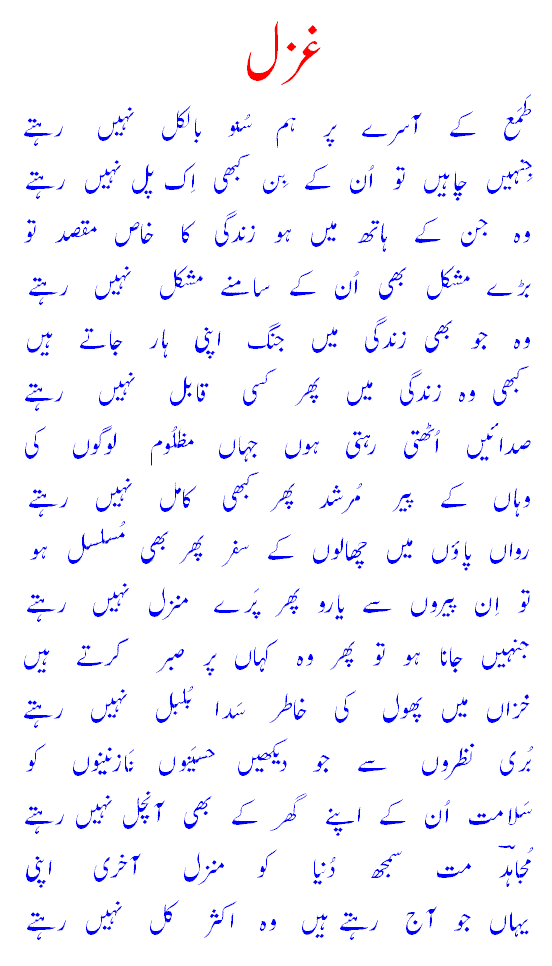 غزل
طَمَع کے آسرے پر ہم سُنو بالکل نہیں رہتے
جِنہیں چاہیں تو اُن کے بِن کبھی اِک پل نہیں رہتے
وہ جن کے ہاتھ میں ہو زندگی کا خاص مقصد تو
بڑے مشکل بھی اُن کے سامنے مشکل نہیں رہتے
وہ جو بھی زندگی میں جنگ اپنی ہار جاتے ہیں
کبھی وہ زندگی میں پھر کسی قابل نہیں رہتے
صدائیں اُٹھتی رہتی ہوں جہاں مظلُوم لوگوں کی
وہاں کے پیر مُرشد پھر کبھی کامل نہیں رہتے
رواں پاؤں میں چھالوں کے سفر پھر بھی مُسلسل ہو
تو اِن پیروں سے یارو پھر پَرے منزل نہیں رہتے
جنہیں جانا ہو تو پھر وہ کہاں پر صبر کرتے ہیں
خزاں میں پھول کی خاطر سَدا بُلبل نہیں رہتے
بُری نظروں سے جو دیکھیں حسیَنوں نَازنینوں کو
سَلامت اُن کے اپنے گھر کے بھی آنچل نہیں رہتے
مُجاہدؔ مت سمجھ دُنیا کو منزل آخری اپنی
یہاں جو آج رہتے ہیں وہ اکثر کل نہیں رہتے